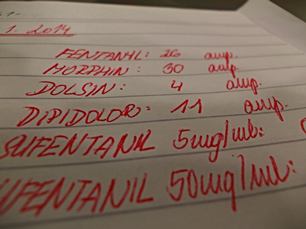 1. 2014
FENTANYL: 26 amp.
MORPHIN: 30 amp.
DOLSIN: 4 amp.
DIPIDOLOR: 11 amp.
SUFENTANIL 5mg/ml:
SUFENTANIL 50mg/ml: